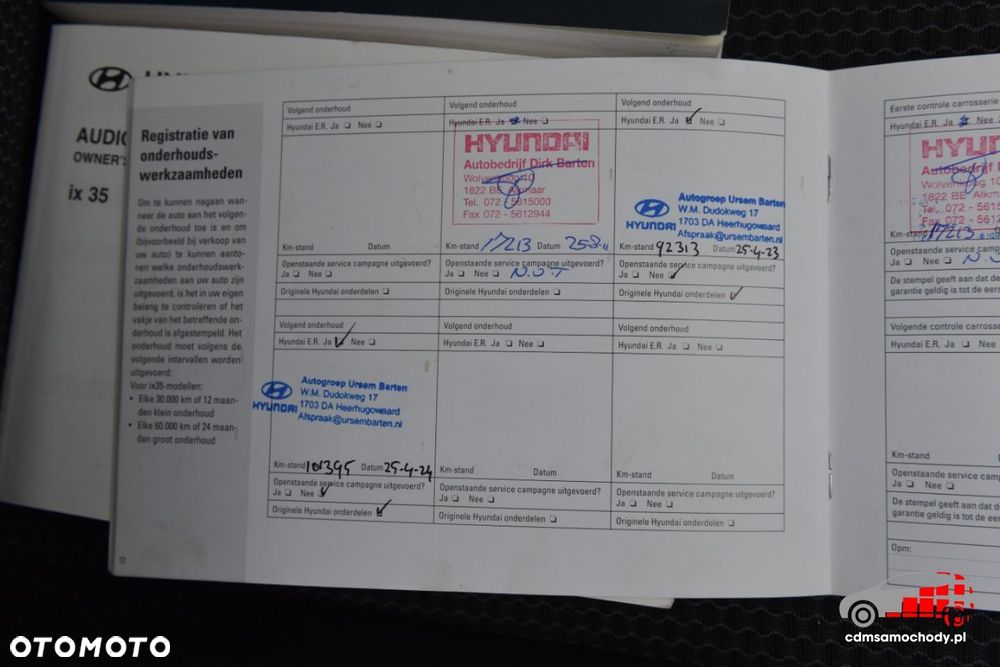 AUDIO
OWNER'S
ix 35
Registratie van
onderhouds-
werkzaamheden
Om te kunnen nagaan wan-
neer de auto aan het volgen-
de onderhoud toe is en om
(bijvoorbeeld bij verkoop van
uw auto) te kunnen aanto-
nen welke onderhoudswerk-
zaamheden aan uw auto zijn
uitgevoerd, is het in uw eigen
belang te controleren of het
vakje van het betreffende on-
derhoud is afgestempeld. Het
onderhoud moet volgens de
volgende intervallen worden
uitgevoerd:
Voor ix35-modellen:
• Elke 30.000 km of 12 maan-
den klein onderhoud
• Elke 60.000 km of 24 maan-
den groot onderhoud
12
Volgend onderhoud
Hyundai E.R. Ja ❏ Nee ❏
Km-stand Datum
Openstaande service campagne uitgevoerd?
Ja ❏ Nee ❏
Originele Hyundai onderdelen ❏
Volgend onderhoud
Hyundai E.R. Ja ❏ Nee ❏
HYUNDAI
Autobedrijf Dirk Barten
Wolvenkoog 10
1822 BE Alkmaar
Tel. 072 - 5615000
Fax 072 - 5612944
Km-stand 17213 Datum 25-8-11
Openstaande service campagne uitgevoerd?
Ja ❏ Nee ❏ N.V.T
Originele Hyundai onderdelen ❏
Volgend onderhoud
Hyundai E.R. Ja ❏ Nee ❏
HYUNDAI
Autogroep Ursem Barten
W.M. Dudokweg 17
1703 DA Heerhugowaard
Afspraak@ursembarten.nl
Km-stand 92313 Datum 25-4-23
Openstaande service campagne uitgevoerd?
Ja ❏ Nee ❏
Originele Hyundai onderdelen ❏
Volgend onderhoud
Hyundai E.R. Ja ❏ Nee ❏
HYUNDAI
Autogroep Ursem Barten
W.M. Dudokweg 17
1703 DA Heerhugowaard
Afspraak@ursembarten.nl
Km-stand 101395 Datum 25-4-24
Openstaande service campagne uitgevoerd?
Ja ❏ Nee ❏
Originele Hyundai onderdelen ❏
Volgend onderhoud
Hyundai E.R. Ja ❏ Nee ❏
Km-stand Datum
Openstaande service campagne uitgevoerd?
Ja ❏ Nee ❏
Originele Hyundai onderdelen ❏
Volgend onderhoud
Hyundai E.R. Ja ❏ Nee ❏
Km-stand Datum
Openstaande service campagne uitgevoerd?
Ja ❏ Nee ❏
Originele Hyundai onderdelen ❏
Eerste controle carrosserie
Hyundai E.R. Ja ❏ Nee
HYUND
Autobedrijf
Wolvenkoog 10
1822 BE Alkm
Tel. 072 - 5615
Fax 072 - 561
Km-stand 17213
Openstaande service camp
Ja ❏ Nee ❏
De stempel geeft aan dat de
garantie geldig is tot de eers
Volgende controle carrosse
Hyundai E.R. Ja ❏ Nee
Km-stand
Openstaande service camp
Ja ❏ Nee ❏
De stempel geeft aan dat d
garantie geldig is tot de eers
Opm:
OTOMOTO
cdmsamochody.pl